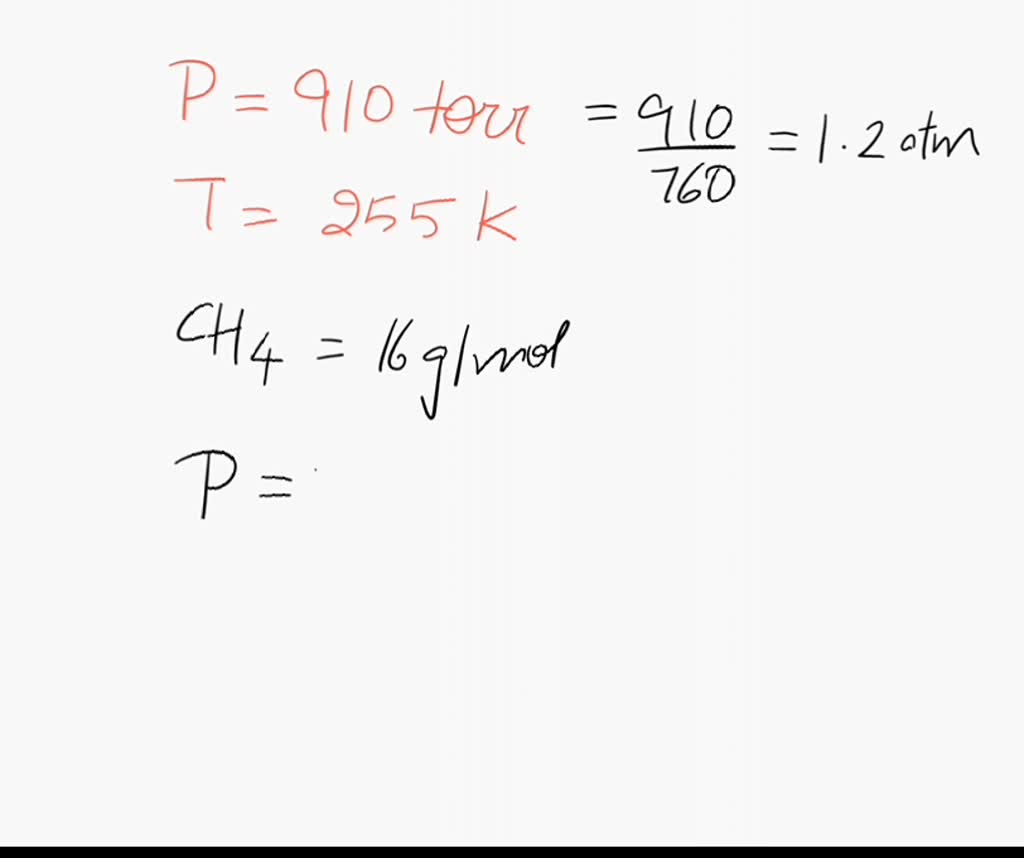 P = 910 torr = 910/760 = 1.2 atm
T = 255 K
CH4 = 16 g/mol
P =